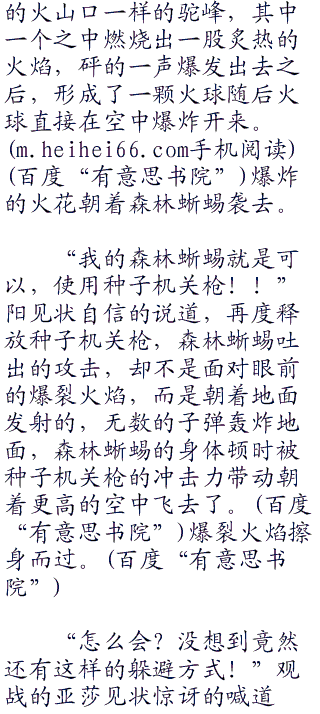 的火山口一样的驼峰，其中
一个之中燃烧出一股炙热的
火焰，砰的一声爆发出去之
后，形成了一颗火球随后火
球直接在空中爆炸开来。
(m.heihei66.com手机阅读)
(百度“有意思书院”)爆炸
的火花朝着森林蜥蜴袭去。
“我的森林蜥蜴就是可
以，使用种子机关枪！！”
阳见状自信的说道，再度释
放种子机关枪，森林蜥蜴吐
出的攻击，却不是面对眼前
的爆裂火焰，而是朝着地面
发射的，无数的子弹轰炸地
面，森林蜥蜴的身体顿时被
种子机关枪的冲击力带动朝
着更高的空中飞去了。(百度
“有意思书院”)爆裂火焰擦
身而过。(百度“有意思书
院”)
“怎么会？没想到竟然
还有这样的躲避方式！”观
战的亚莎见状惊讶的喊道